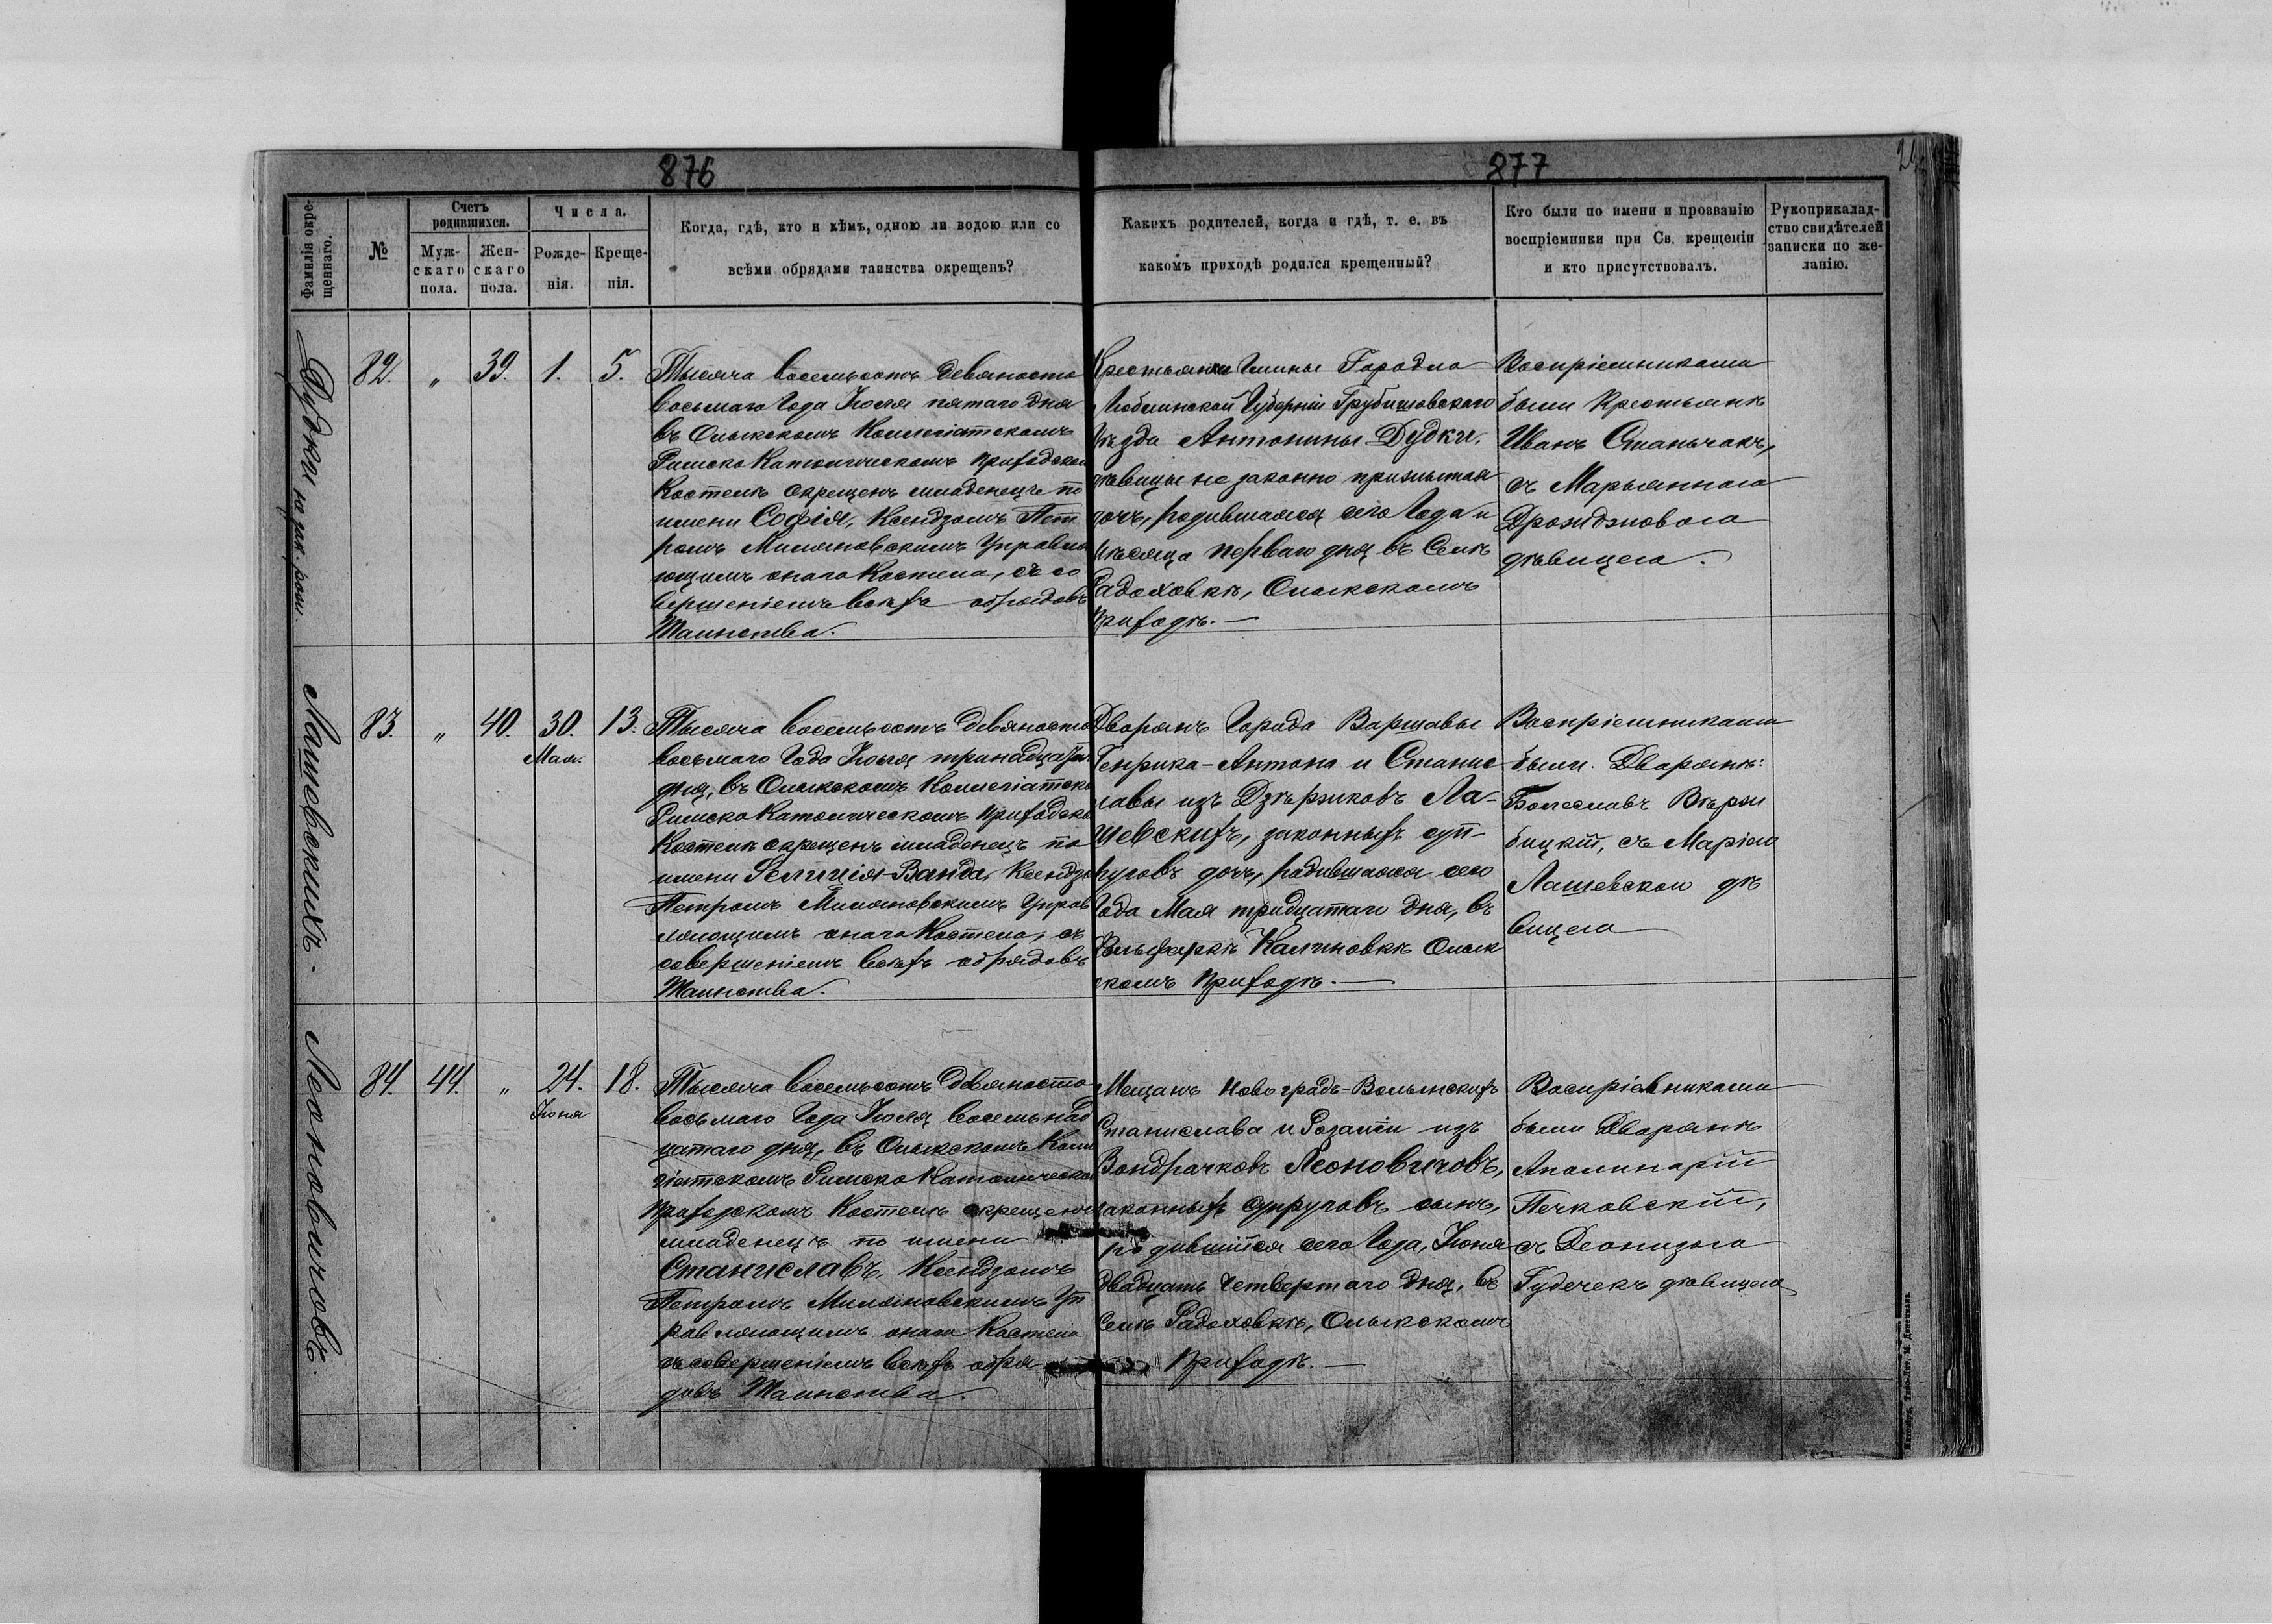 876
877
Фамилія окрещеннаго.
№
Счетъ родившихся.
Мужскаго пола.
Женскаго пола.
Числа.
Рожденія.
Крещенія.
Когда, гдѣ, кто и кѣмъ, одною ли водою или со
всѣми обрядами таинства окрещенъ?
Какихъ родителей, когда и гдѣ, т. е. въ
какомъ приходѣ родился крещенный?
Кто были по имени и прозванію
воспріемники при Св. крещеніи
и кто присутствовалъ.
Рукоприкалад-
ство свидѣтелей
записки по же-
ланію.
Дудки не зак. рож.
82. " 39. 1. 5.
Тысяча восемьсотъ девяносто
восьмаго Года Іюля пятаго дня
въ Олыкскомъ Коллегіатскомъ
Римско Католическомъ приходском
Костелѣ окрещенъ младенецъ по
имени Софія, Ксендзомъ Пет
ромъ Миляновскимъ Управля
ющимъ онаго Костела, съ со
вершеніемъ всѣхъ обрядовъ
Таинства.
Крестьянки Гмины Городло
Люблинской Губерніи Грубишовскаго
Уѣзда Антонины Дудки,
дѣвицы не законно прижитая
дочь, родившаяся сего Года и
мѣсяца перваго дня въ Селѣ
Радоховкѣ, Олыкскомъ
приходѣ.—
Воспріемниками
были Крестьянѣ
Иванъ Станьчакъ,
съ Марьянною
Дрождзіовою
дѣвицею.
Лашевскихъ.
83. " 40. 30. 13.
Мая.
Тысяча восемьсотъ девяносто
восьмаго Года Іюля тринадцатаго
дня, въ Олыкскомъ Коллегіатско
Римско Католическомъ приходско
Костелѣ окрещенъ младенецъ по
имени Фелиція-Ванда, Ксендзо
Петромъ Миляновскимъ Управ
ляющимъ онаго Костела, съ
совершеніемъ всѣхъ обрядовъ
Таинства.
Дворянъ Города Варшавы
Генрика-Антона и Станис
лавы изъ Дзѣржковъ Ла-
шевскихъ, законныхъ суп-
руговъ дочь, родившаяся сего
Года Мая тридцатаго дня, въ
Фольваркѣ Калиновкѣ Олык
скомъ приходѣ.—
Воспріемниками
были Дворянѣ:
Болеславъ Вѣрж
бицкій, съ Маріею
Лашевскою дѣ
вицею
Леоновичовъ.
84. 44. " 24. 18.
Іюня
Тысяча восемьсотъ девяносто
восьмаго Года Іюля восемьнад
цатаго дня, въ Олыкскомъ Колле
гіатскомъ Римско Католическом
приходскомъ Костелѣ окрещенъ
младенецъ по имени
Станиславъ, Ксендзомъ
Петромъ Миляновскимъ Уп
равляющимъ онаго Костела
съ совершеніемъ всѣхъ обря
довъ Таинства.
Мещанъ Новоградъ-Волынскихъ
Станислава и Розаліи изъ
Вондрачковъ Леоновичовъ,
законныхъ супруговъ сынъ,
родившійся сего Года, Іюня
двадцать четвертаго дня, въ
Селѣ Радоховкѣ, Олыкскомъ
приходѣ.—
Воспріемниками
были Дворянѣ
Аполинарій
Печковскій,
съ Деонизою
Гудечекъ дѣвицею